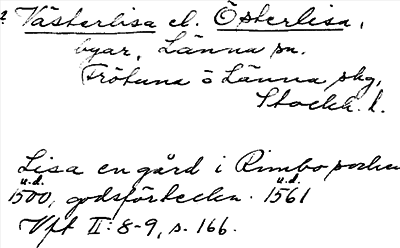 Västerlisa el. Österlisa,
byar, Länna sn.
Frötuna o Länna skg,
Stockh. l.
Lisa en gård i Rimbo socken
u.d. u.d.
1500, godsförteckn. 1561
Vft II: 8-9, s. 166.